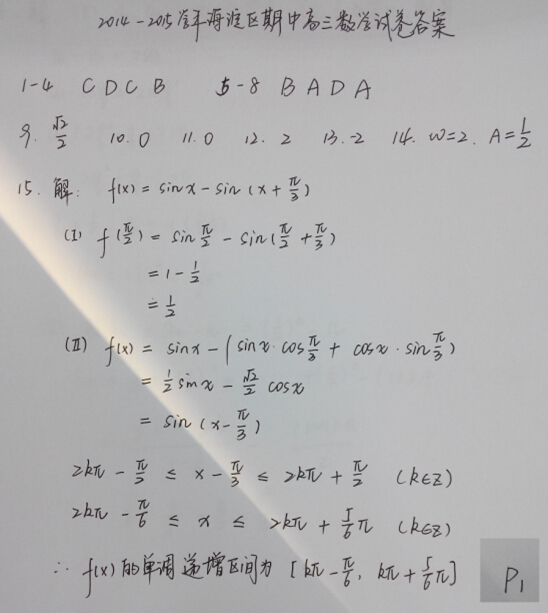 2014-2015学年海淀区期中高三数学试卷答案
1-4 C D C B 5-8 B A D A
9. √2/2 10. 0 11. 0 12. 2 13. -2 14. W=2. A=1/2
15. 解: f(x) = sinx - sin (x + π/3)
(I) f(π/2) = sin π/2 - sin(π/2 + π/3)
= 1 - 1/2
= 1/2
(II) f(x) = sinx - (sinx·cos π/3 + cosx·sin π/3)
= 1/2 sinx - √2/2 cosx
= sin (x - π/3)
2kπ - π/2 ≤ x - π/3 ≤ 2kπ + π/2 (k∈Z)
2kπ - π/6 ≤ x ≤ 2kπ + 5/6 π (k∈Z)
∴ f(x)的单调递增区间为 [kπ - π/6, kπ + 5/6 π]
P1